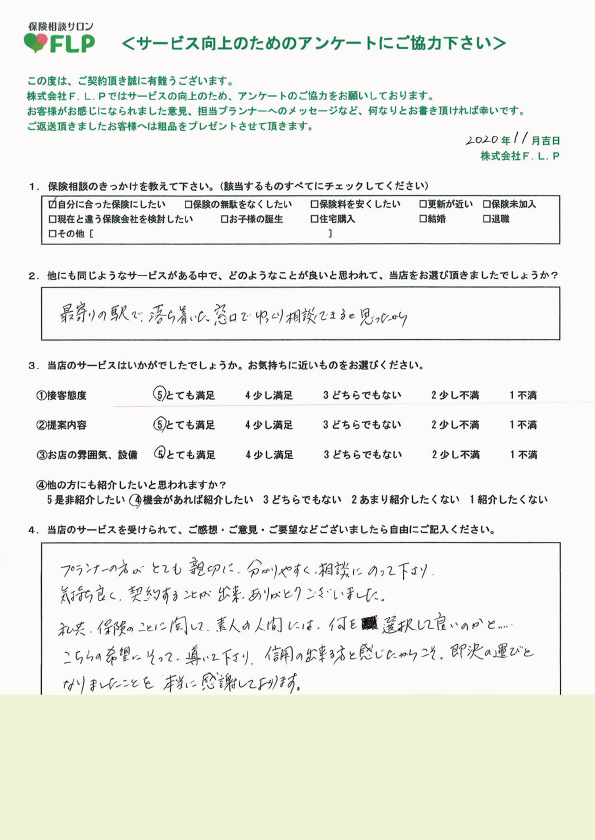 保険相談サロン
FLP
＜サービス向上のためのアンケートにご協力下さい＞
この度は、ご契約頂き誠に有難うございます。
株式会社Ｆ．Ｌ．Ｐではサービスの向上のため、アンケートのご協力をお願いしております。
お客様がお感じになられました意見、担当プランナーへのメッセージなど、何なりとお書き頂ければ幸いです。
ご返送頂きましたお客様へは粗品をプレゼントさせて頂きます。
2020年11月吉日
株式会社Ｆ．Ｌ．Ｐ
１．保険相談のきっかけを教えて下さい。（該当するものすべてにチェックしてください）
☑自分に合った保険にしたい □保険の無駄をなくしたい □保険料を安くしたい □更新が近い □保険未加入
□現在と違う保険会社を検討したい □お子様の誕生 □住宅購入 □結婚 □退職
□その他［ ］
２．他にも同じようなサービスがある中で、どのようなことが良いと思われて、当店をお選び頂きましたでしょうか？
最寄りの駅で、落ち着いた窓口でゆっくり相談できると思ったから
３．当店のサービスはいかがでしたでしょうか。お気持ちに近いものをお選びください。
①接客態度 ５とても満足 ４少し満足 ３どちらでもない ２少し不満 １不満
②提案内容 ５とても満足 ４少し満足 ３どちらでもない ２少し不満 １不満
③お店の雰囲気、設備 ５とても満足 ４少し満足 ３どちらでもない ２少し不満 １不満
④他の方にも紹介したいと思われますか？
５是非紹介したい ４機会があれば紹介したい ３どちらでもない ２あまり紹介したくない １紹介したくない
４．当店のサービスを受けられて、ご感想・ご意見・ご要望などございましたら自由にご記入ください。
プランナーの方がとても親切に、分かりやすく、相談にのって下より、
気持ち良く、契約することが出来、ありがとうございました。
私共、保険のことに関して、素人の人間には、何を選択して良いのかと……
こちらの希望にそって、導いて下より、信用の出来る方と感じたからこそ、即決の運びと
なりましたことを本当に感謝しております。